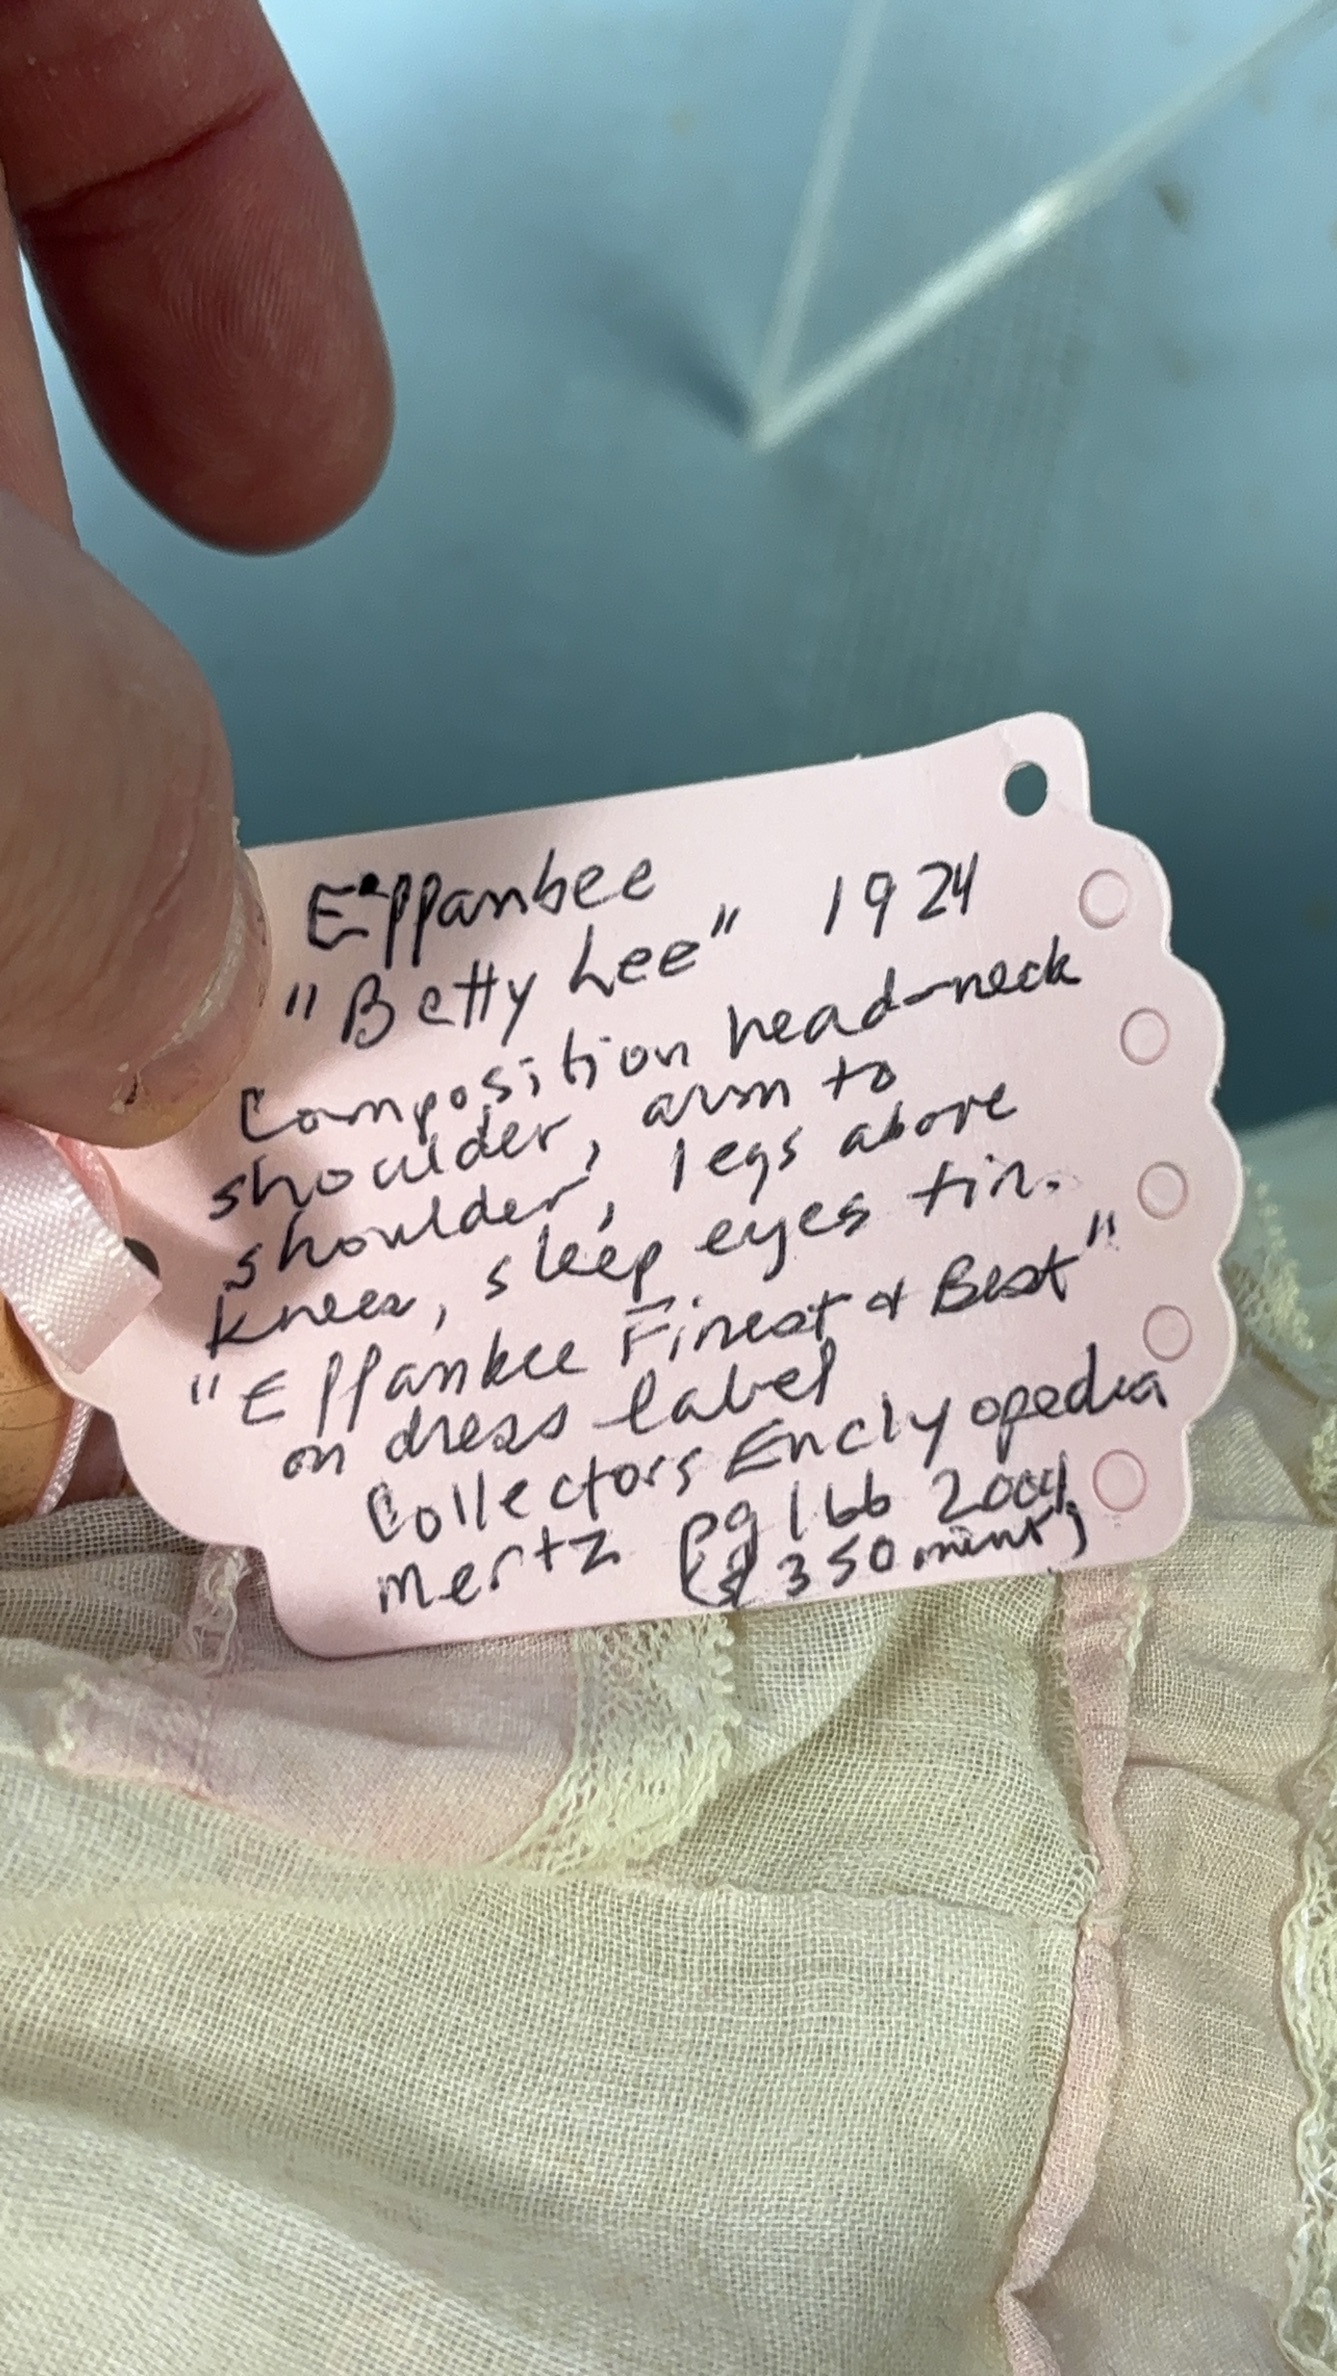 Effanbee
"Betty Lee" 1924
Composition head-neck
shoulder, arm to
shoulder, legs above
knees, sleep eyes tin.
"Effanbee Finest & Best"
on dress label
Collectors Enclyopedia
Mertz pg 166 2004
($350 mint)